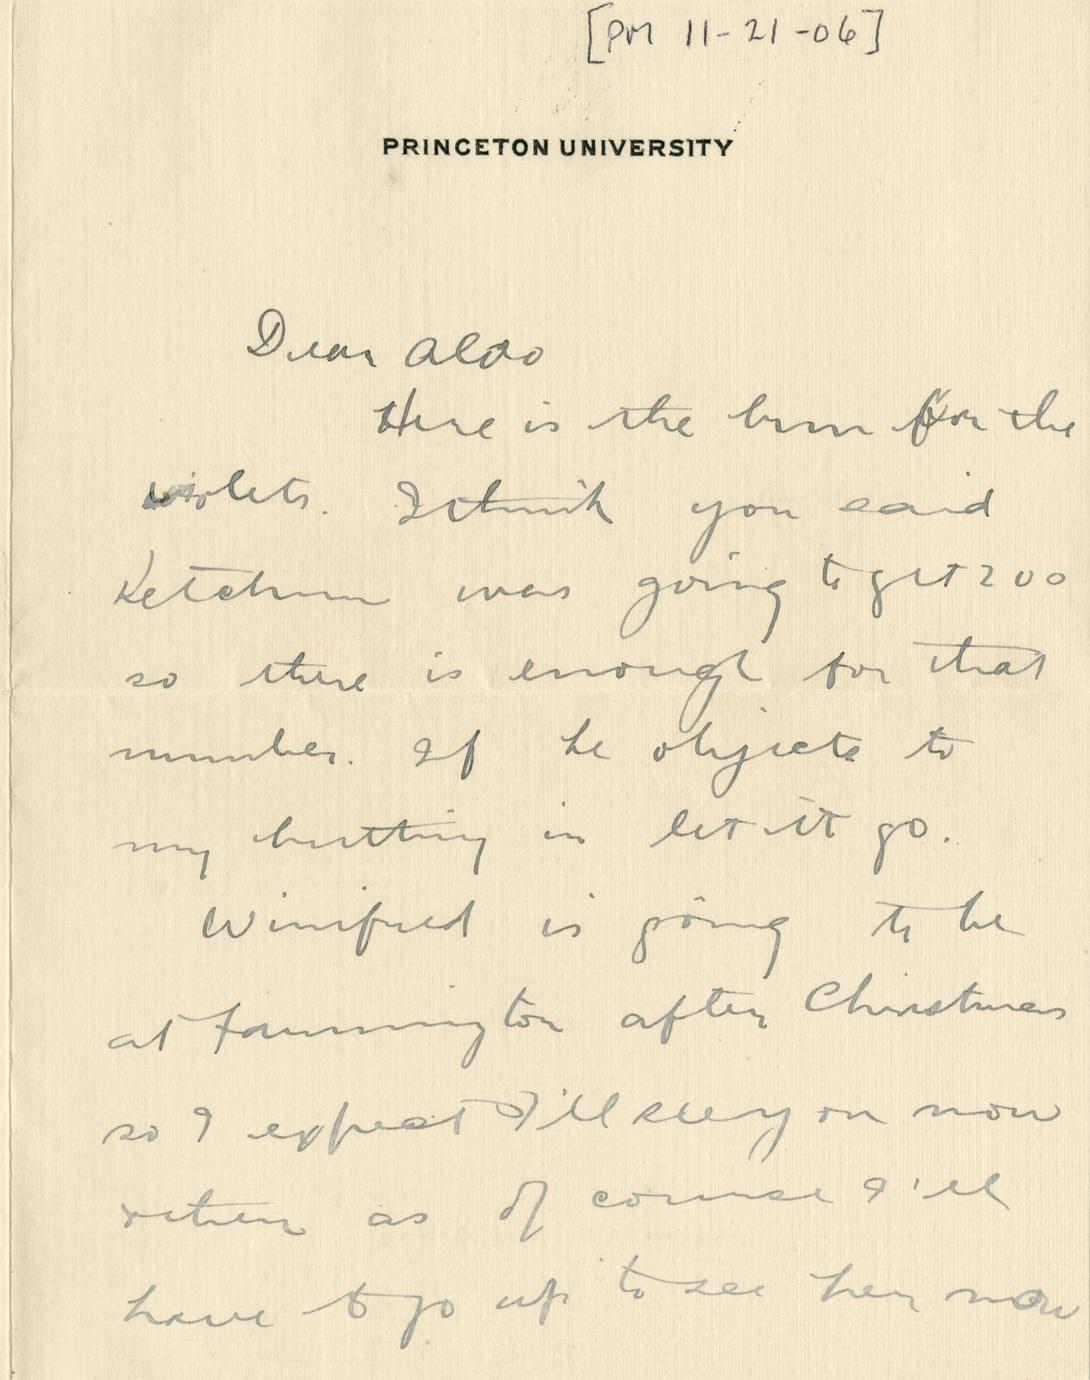 [PM 11-21-06]
PRINCETON UNIVERSITY
Dear Aldo
Here is the bum for the
violets. I think you said
Ketchum was going to get 200
so there is enough for that
number. If he objects to
my butting in let it go.
Winifred is going to be
at Farmington after Christmas
so I expect I'll see you now
 as of course I'll
have to go up to see her now